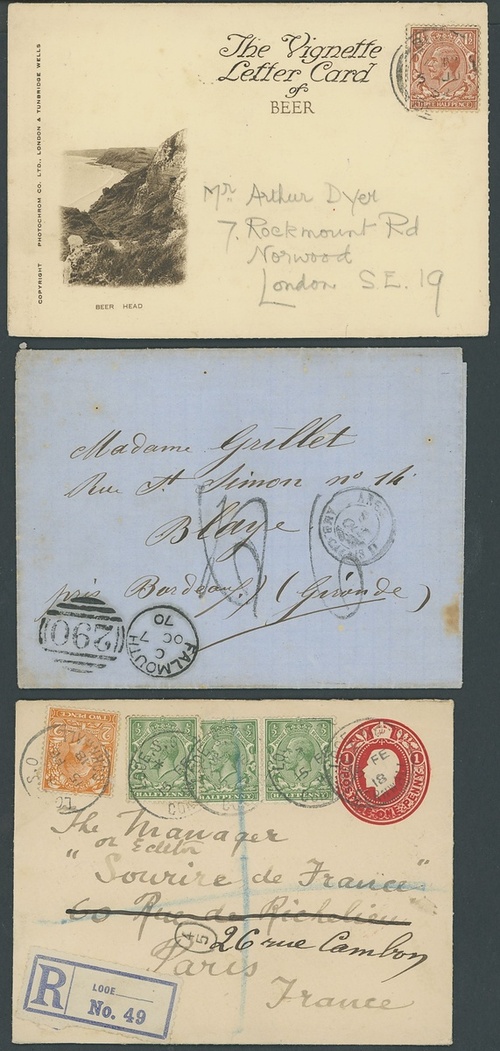 The Vignette
Letter Card
of
BEER
COPYRIGHT PHOTOCHROM CO. LTD., LONDON & TUNBRIDGE WELLS
BEER HEAD
Mr. Arthur Dyer
7. Rockmount Rd
Norwood
London S.E. 19
Madame Grillet
Rue St Simon no 14
Blaye
près Bordeaux (Gironde)
290
FALMOUTH
C
OC 7
70
TWO PENCE
HALFPENNY
HALFPENNY
HALFPENNY
1 POSTAGE 1
ONE PENNY
FE
18
The Manager
or Editor
"Sourire de France"
60 Rue de Richelieu
54
26 rue Cambon
Paris
France
R
LOOE
No. 49